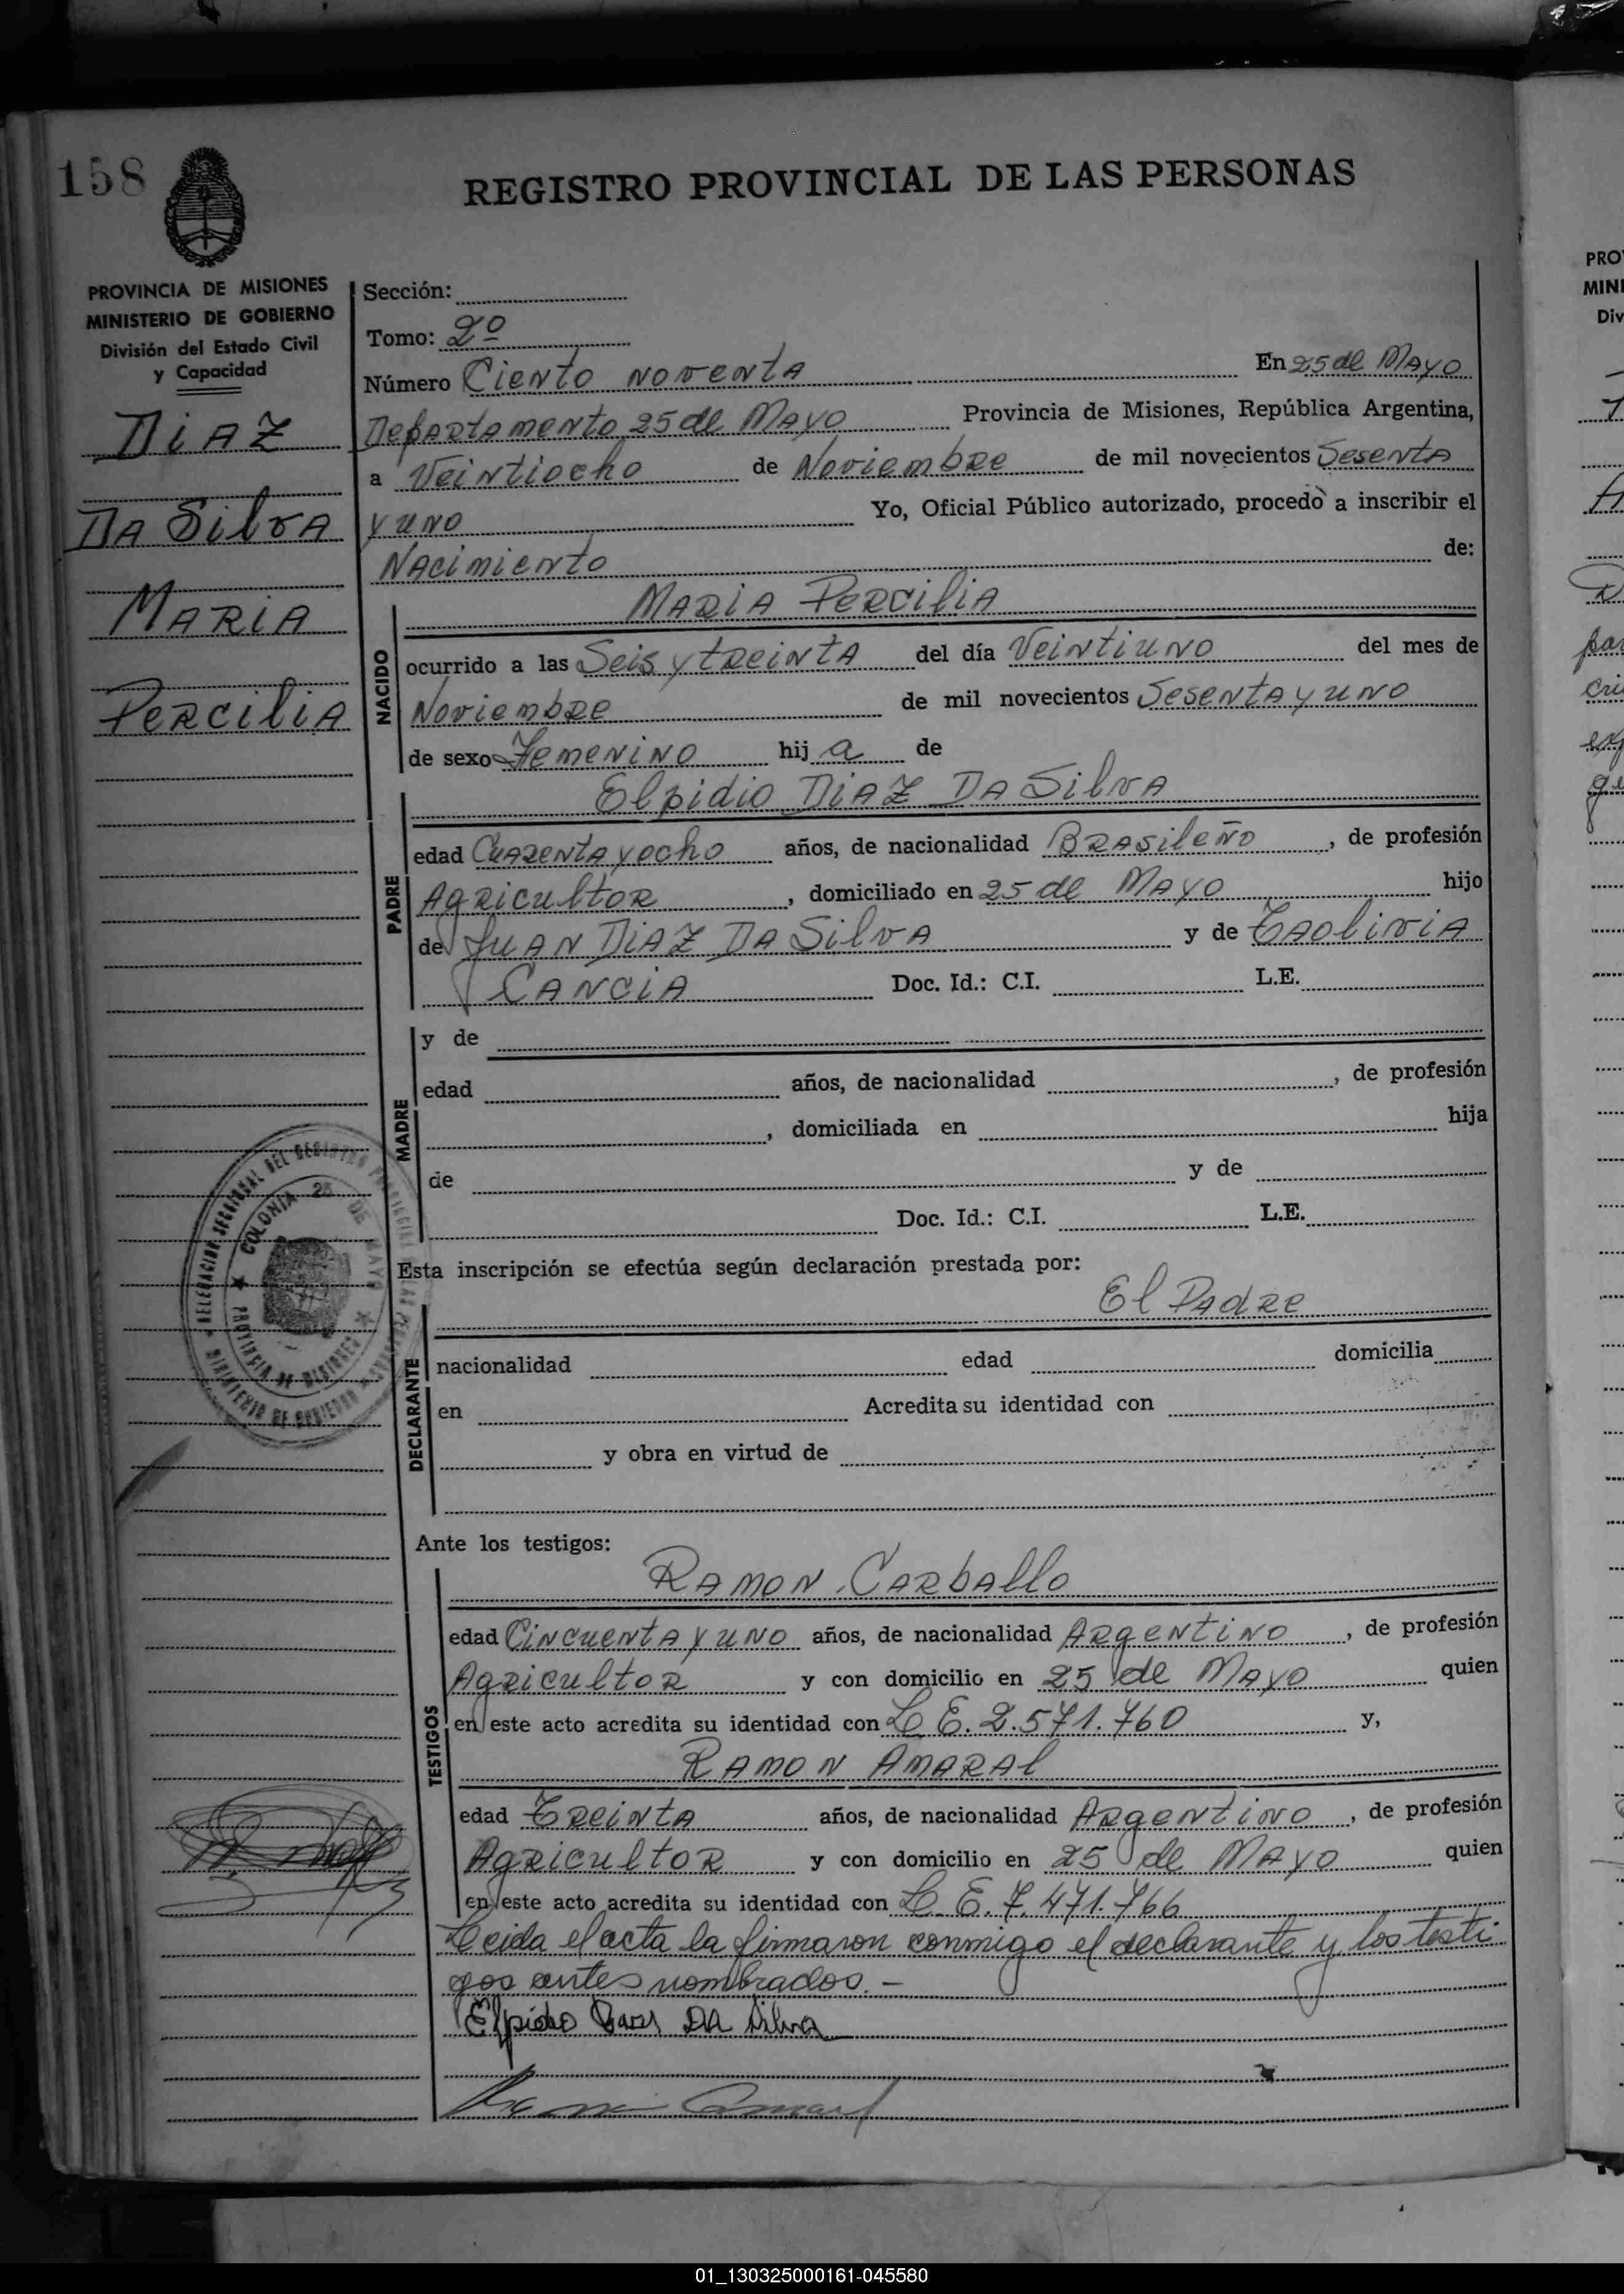 158
REGISTRO PROVINCIAL DE LAS PERSONAS
PROVINCIA DE MISIONES
MINISTERIO DE GOBIERNO
División del Estado Civil
y Capacidad
DIAZ
DA SilvA
MARIA
PERCILIA
Sección:
Tomo: 2º
Número Ciento noventa En 25 de Mayo
Departamento 25 de Mayo Provincia de Misiones, República Argentina,
a Veintiocho de Noviembre de mil novecientos Sesenta
y uno Yo, Oficial Público autorizado, procedo a inscribir el
Nacimiento de:
NACIDO
MARIA PERCILIA
ocurrido a las Seis y treinta del día Veintiuno del mes de
Noviembre de mil novecientos Sesenta y uno
de sexo Femenino hij a de
PADRE
Elpidio DIAZ DA SilvA
edad Cuarenta y ocho años, de nacionalidad Brasileño, de profesión
Agricultor, domiciliado en 25 de Mayo hijo
de Juan DIAZ DA SilvA y de
CANCIA Doc. Id.: C.I. L.E.
MADRE
y de
edad años, de nacionalidad , de profesión
, domiciliada en hija
de y de
Doc. Id.: C.I. L.E.
Esta inscripción se efectúa según declaración prestada por:
DECLARANTE
El Padre
nacionalidad edad domicilia
en Acredita su identidad con
y obra en virtud de
COLONIA 25 DE MAYO
PROVINCIA DE MISIONES
Ante los testigos:
TESTIGOS
Ramon Carballo
edad Cincuenta y uno años, de nacionalidad Argentino, de profesión
Agricultor y con domicilio en 25 de Mayo quien
en este acto acredita su identidad con L.E. 2.571.760 y,
Ramon Amaral
edad Treinta años, de nacionalidad Argentino, de profesión
Agricultor y con domicilio en 25 de Mayo quien
en este acto acredita su identidad con L.E. 7.471.766
Leida el acta la firmaron conmigo el declarante y los testi-
gos antes nombrados.-
Elpidio DA Silva
01_130325000161-045580